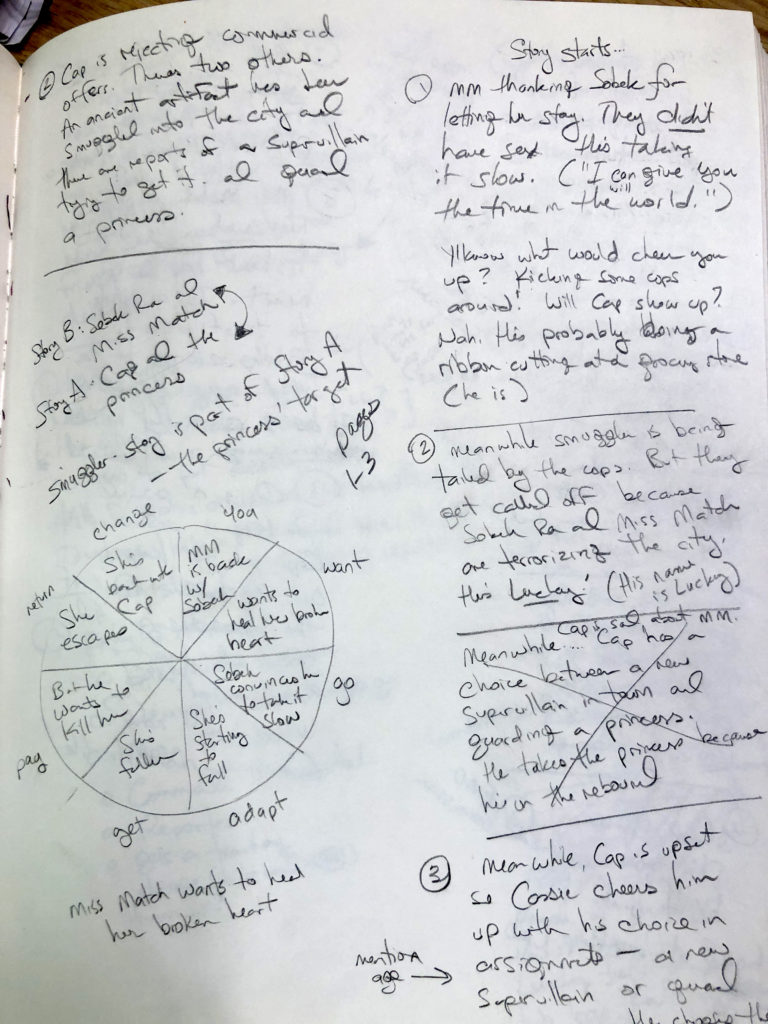 ② Cap is rejecting commercial
offers. Theres two others.
An ancient artifact has been
smuggled into the city and
there are reports of a supervillain
trying to get it. and guard
a princess.
Story B: Sobek Ra and
Miss Match
Story A - Cap and the
princess
Smuggler story is part of Story A
— the princess' target
pages
1-3
change
you
want
go
adapt
get
pay
return
MM
is back
w/
Sobek
wants to
heal her broken
heart
Sobek
convinces her
to take it
slow
She's
starting
to
fall
She's
fallen
But he
wants to
kill her
She
escapes
She's
back with
Cap
Miss Match wants to heal
her broken heart
Story starts...
① MM thanking Sobek for
letting her stay. They didn't
have sex. He's taking
it slow. ("I can give you
will
the time in the world.")
Y'know what would cheer you
up? Kicking some cops
around! Will Cap show up?
Nah. He's probably doing a
ribbon cutting at a grocery store
(he is)
② Meanwhile smuggler is being
tailed by the cops. But they
get called off because
Sobek Ra and Miss Match
are terrorizing the city.
He's Lucky! (His name
is Lucky)
Cap is sad about MM.
Meanwhile.... Cap has a
choice between a new
Supervillain in town and
guarding a princess.
He takes the princess because
he's on the rebound
③ Meanwhile, Cap is upset
so Cassie cheers him
up with his choice in
assignments — a new
Supervillain or guard
mention
age →
He chooses the